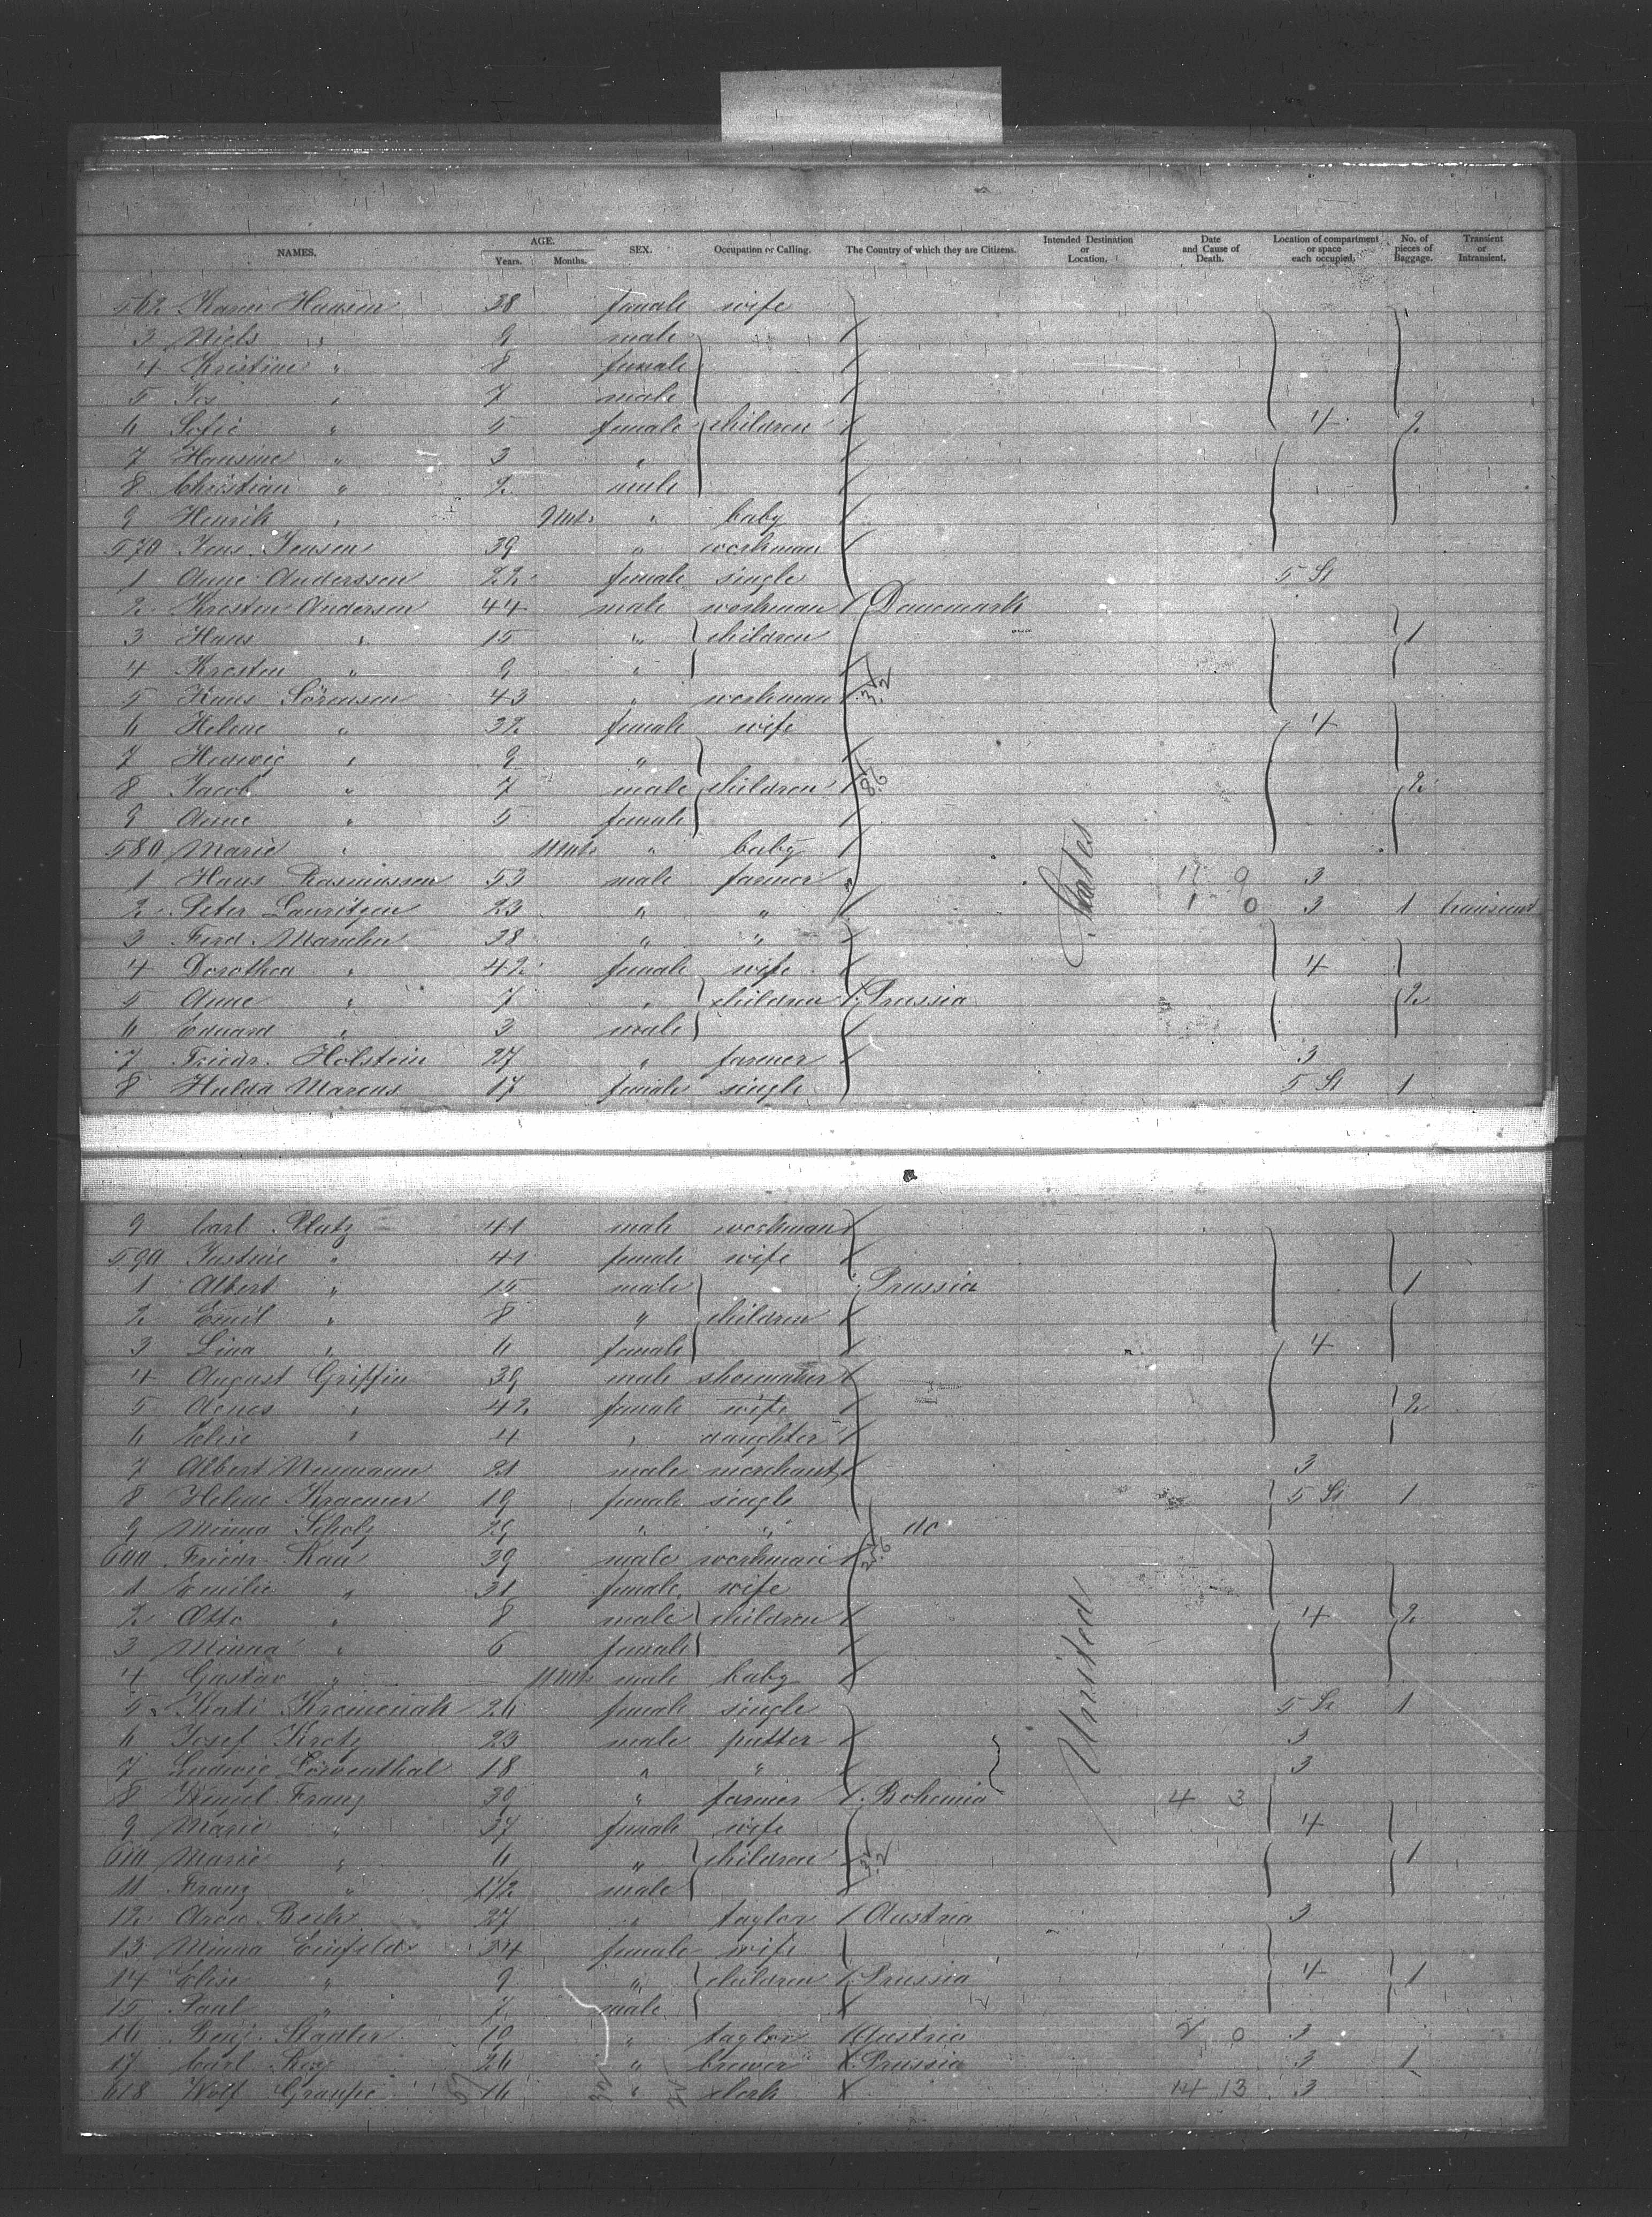 NAMES. AGE. Years. Months. SEX. Occupation or Calling. The Country of which they are Citizens. Intended Destination or Location. Date and Cause of Death. Location of compartment or space each occupied. No. of pieces of Baggage. Transient or Intransient.
562 Karen Hansen 38 female wife
3 Niels " 9 male
4 Kristine " 8 female
5 " 7 male
6 Sofie " 5 female children 4 2
7 Hansine " 3 "
8 Christian " 2 male
9 Henrik " " baby
570 Jens Jensen 39 " workman
1 Anne Anderssen 22 female single 5 St
2 Kresten Andersen 44 male workman Danemark
3 Hans " 15 " children 1
4 Kresten " 9 "
5 Hans Sörensen 43 " workman
6 Helene " 32 female wife 4
7 Hedwig " 9 "
8 Jacob " 7 male children 2
9 Anne " 5 female
580 Marie " " baby
1 Hans Rasmussen 53 male farmer 11 9 3
2 Peter Lauritzen 23 " " 1 0 3 1 transient
3 Ferd. 38 " "
4 Dorothea " 42 female wife 4
5 Anne " 7 " children Prussia 2
6 Eduard " 3 male
7 Friedr. Holstein 27 " farmer 3
8 Hulda Marcus 17 female single 5 St 1
States
9 Carl Platz 41 male workman
590 Justine " 41 female wife
1 Albert " 15 male Prussia 1
2 Emil " 8 " children
3 Lina " 6 female 4
4 August Griffin 39 male shoemaker
5 Agnes " 42 female wife 2
6 Elise " 4 " daughter
7 Albert Neumann 21 male merchant 3
8 Helene Kraemer 19 female single 5 St 1
9 Minna Scholz 29 " " do
600 Friedr. Rau 39 male workman
1 Emilie " 31 female wife
2 Otto " 8 male children 4 2
3 Minna " 6 female
4 Gustav " male baby
5 Kati 26 female single 5 St 1
6 Josef Kratz 23 male putter 3
7 Ludwig Löwenthal 18 " " 3
8 Franz 39 " farmer Bohemia 4 3
9 Marie " 37 female wife 4
610 Marie " 6 " children 1
11 Franz " 1 1/2 male
12 Beck 27 " taylor Austria 3
13 Minna Einfeldt 34 female wife
14 Elise " 9 " children Prussia 4 1
15 Paul " 7 male
16 Benj. Stadler 19 " taylor Austria 2 0 3
17 Carl 26 " brewer Prussia 3 1
618 Wolf Graupe 16 " clerk 14 13 3
United